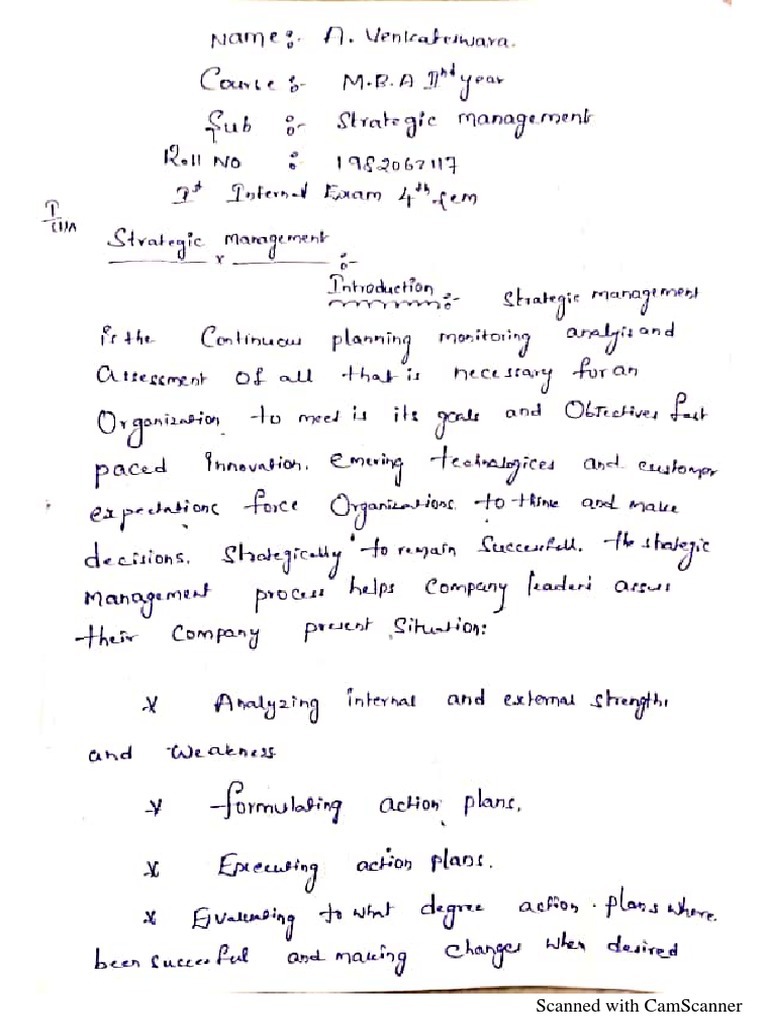 Name:- A. Venkateswara.
Course:- M.B.A IInd year
Sub :- Strategic management
Roll No : 1982062117
Ist Internal Exam 4th sem
I
(1)A
Strategic x Management :-
Introduction :- Strategic management
is the Continuous planning monitoring analysis and
Assessment of all that is necessary for an
Organization to meet is its goals and Objectives fast
paced innovation. emering technologices and customer
expectations force Organizations to think and make
decisions. Strategically to remain Successfull. the strategic
Management process helps Company leaders assess
their Company present Situation:
* Analyzing internal and external strengths
and Weakness
* formulating action plans,
* Executing action plans.
* Evaluating to what degree action plans where
been succesful and making changes when desired
Scanned with CamScanner